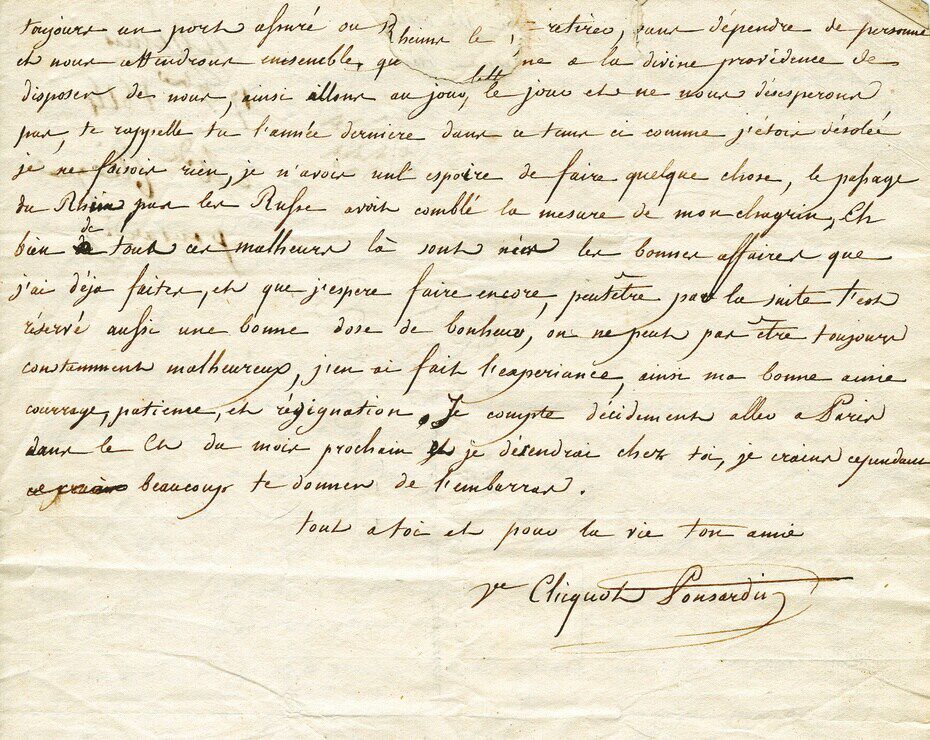 toujours un port assuré ou Rheims le retirer, sans dépendre de personne
et nous attendrons ensemble, a la divine providence de
disposer de nous, ainsi allons au jour, le jour et ne nous désesperons
pas, te rappelle tu l'année derniere dans ce tems ci comme j'étois désolée
je ne faisois rien, je n'avois nul espoire de faire quelque chose, le passage
du Rhin par les Russe avoit comblé la mesure de mon chagrin, Eh
bien de tous ces malheurs là sont nées les bonnes affaires que
j'ai déja faites, et que j'espere faire encore, peutêtre par la suite t'est
réservé aussi une bonne dose de bonheur, on ne peut pas être toujours
constamment malheureux, j'en ai fait l'experiance, ainsi ma bonne amie
courrage, patience, et résignation, Je compte décidement aller a Paris
dans le Ct du mois prochain et je désendrai chez toi, je crains cependant
beaucoup te donner de l'embarras.
tout a toi et pour la vie ton amie
Ve Clicquot Ponsardin